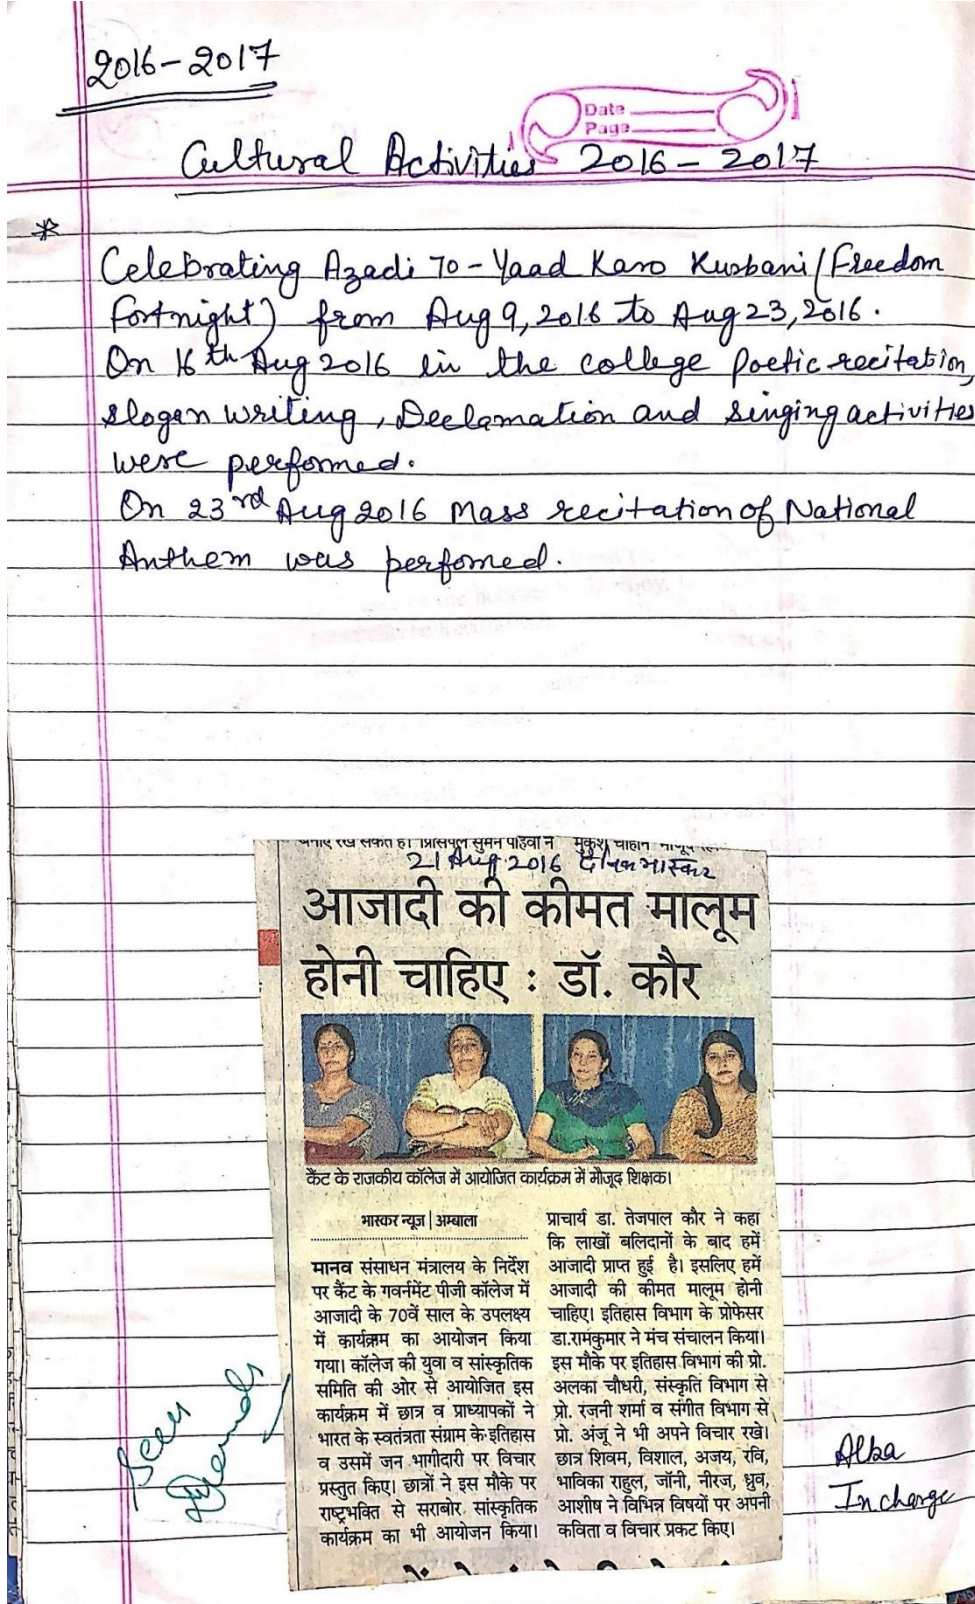 2016-2017
Date
Page
Cultural Activities 2016-2017
*
Celebrating Azadi 70-Yaad Karo Kurbani (Freedom
Fortnight) from Aug 9, 2016 to Aug 23, 2016.
On 16th Aug 2016 in the college Poetic recitation,
slogan writing, Declamation and singing activities
were performed.
On 23rd Aug 2016 Mass recitation of National
Anthem was perfomed.
21 Aug 2016 दैनिक भास्कर
आजादी की कीमत मालूम
होनी चाहिए : डॉ. कौर
कैंट के राजकीय कॉलेज में आयोजित कार्यक्रम में मौजूद शिक्षक।
भास्कर न्यूज | अम्बाला
मानव संसाधन मंत्रालय के निर्देश
पर कैंट के गवर्नमेंट पीजी कॉलेज में
आजादी के 70वें साल के उपलक्ष्य
में कार्यक्रम का आयोजन किया
गया। कॉलेज की युवा व सांस्कृतिक
समिति की ओर से आयोजित इस
कार्यक्रम में छात्र व प्राध्यापकों ने
भारत के स्वतंत्रता संग्राम के इतिहास
व उसमें जन भागीदारी पर विचार
प्रस्तुत किए। छात्रों ने इस मौके पर
राष्ट्रभक्ति से सराबोर, सांस्कृतिक
कार्यक्रम का भी आयोजन किया।
प्राचार्य डा. तेजपाल कौर ने कहा
कि लाखों बलिदानों के बाद हमें
आजादी प्राप्त हुई है। इसलिए हमें
आजादी की कीमत मालूम होनी
चाहिए। इतिहास विभाग के प्रोफेसर
डा.रामकुमार ने मंच संचालन किया।
इस मौके पर इतिहास विभाग की प्रो.
अलका चौधरी, संस्कृति विभाग से
प्रो. रजनी शर्मा व संगीत विभाग से
प्रो. अंजू ने भी अपने विचार रखे।
छात्र शिवम, विशाल, अजय, रवि,
भाविका राहुल, जॉनी, नीरज, ध्रुव,
आशीष ने विभिन्न विषयों पर अपनी
कविता व विचार प्रकट किए।
Seen
Alka
Incharge